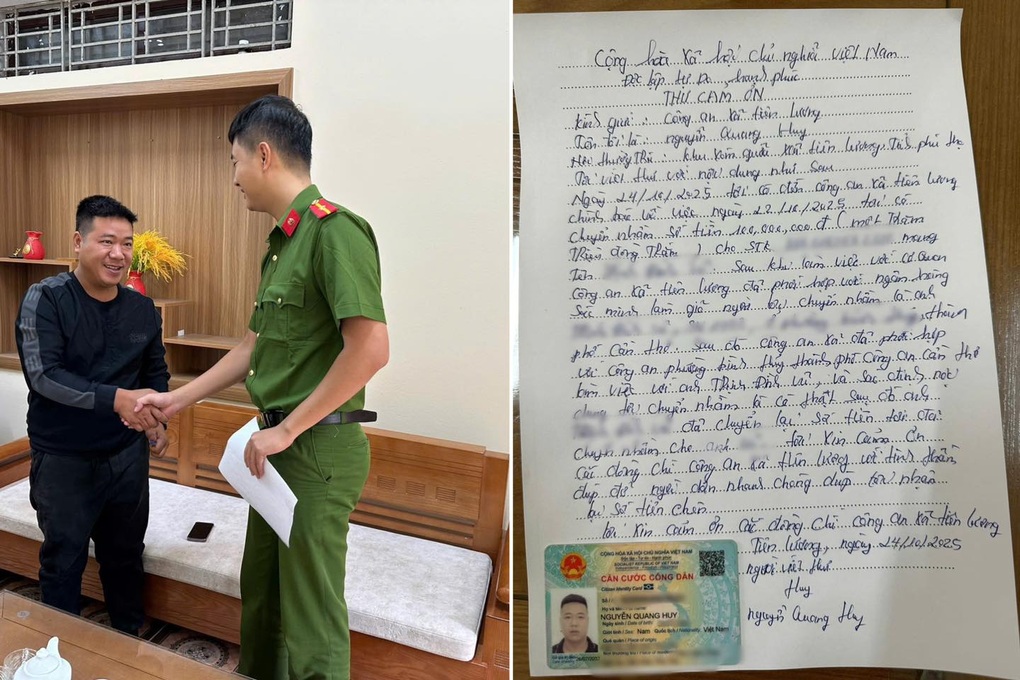 Cộng hòa xã hội chủ nghĩa việt Nam
Độc lập tự do, hạnh phúc
THƯ CẢM ƠN
kính gửi : Công an xã tiên lương
Tên tôi là : nguyễn Quang Huy
Nơi thường Trú : khu xóm quán xã tiên lương, Tỉnh phú thọ
Tôi viết thư với nội dung như sau
Ngày 24/10/2025 tôi có đến công an xã tiên lương
trình báo về việc ngày 22/10/2025 tôi có
chuyển nhầm số tiền 100,000,000 đ ( một Trăm
Triệu đồng Chẵn ) cho STK mang
Tên Sau khi làm việc với cơ quan
Công an xã tiên lương đã phối hợp với ngân hàng
Xác minh làm giã người được chuyển nhầm là anh
thành
phố Cần thơ. Sau đó công an xã đã phối hợp
với công an phường thành phố Công an cần thơ
làm việc với anh Thịnh Đình vũ, và xác định nội
dung tôi chuyển nhầm là có thật sau đó anh
đã chuyển lại số tiền tôi đã
chuyển nhầm cho anh tôi xin cảm ơn
các đồng chí công an xã tiên lương với tinh thần
giúp đỡ người dân nhanh chóng giúp tôi nhận
lại số tiền trên
tôi xin cảm ơn các đồng chí công an xã tiên lương
Tiên lương, ngày 24/10/2025
người viết thư
Huy
nguyễn Quang Huy
CỘNG HÒA XÃ HỘI CHỦ NGHĨA VIỆT NAM
Độc lập - Tự do - Hạnh phúc
SOCIALIST REPUBLIC OF VIET NAM
Independence - Freedom - Happiness
CĂN CƯỚC CÔNG DÂN
Citizen Identity Card
Số /
Họ và
NGUYỄN QUANG HUY
Ngày sinh / Date of birth
Giới tính / Sex: Nam Quốc tịch / Nationality: Việt Nam
Quê quán / Place of origin